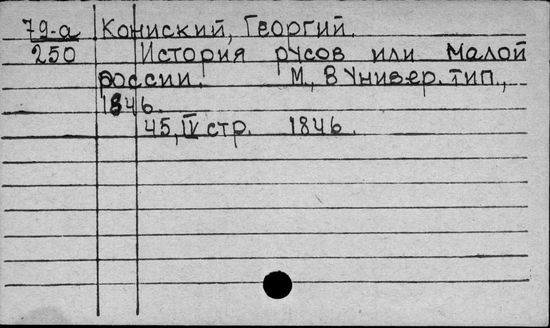 79-а Кониский, Георгий.
250 История русов или Малой
россии. М., В Универ. тип.,
1846.
45, IV стр. 1846.